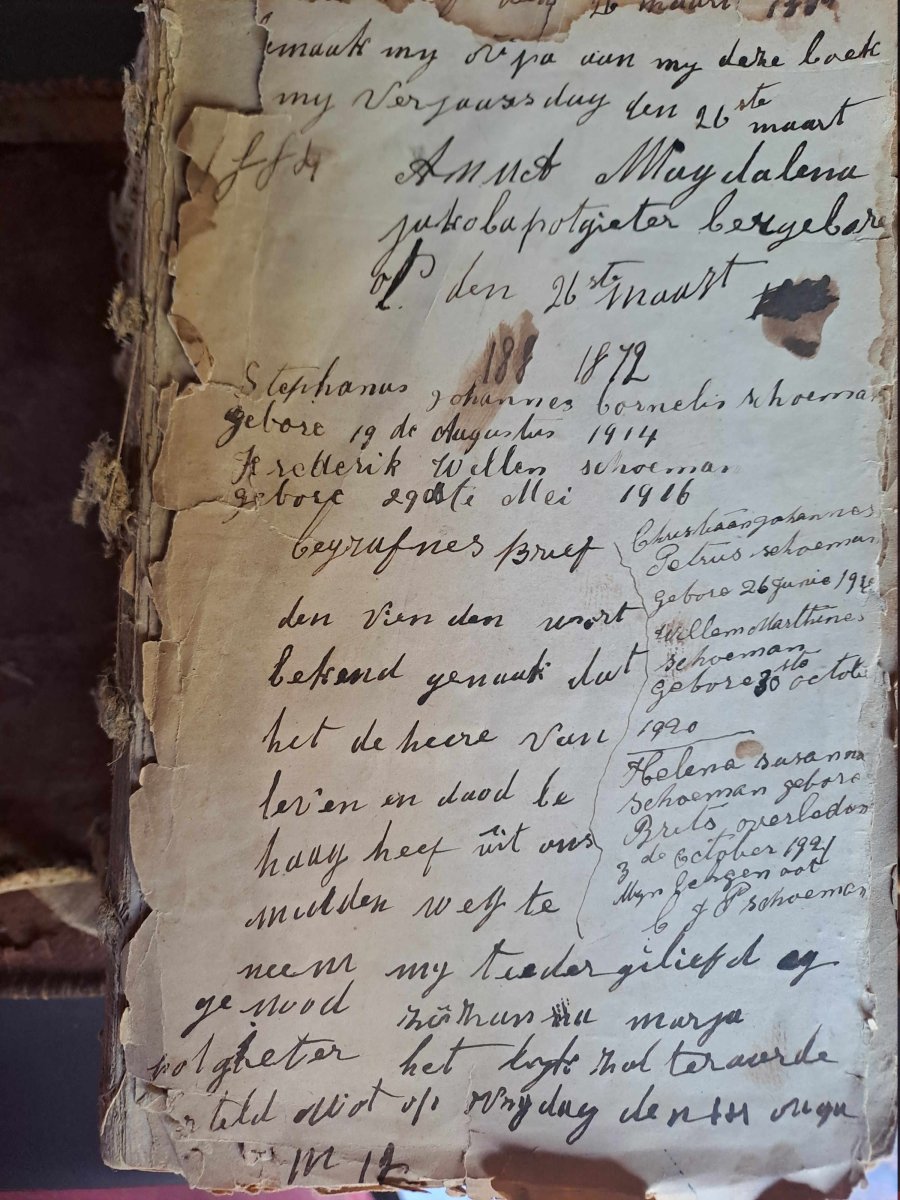 26 maart
maak my oupa aan my deze boek
my verjaarsdag den 26ste
maart
Magdalena
jakoba potgieter
op den 26ste maart
188 1872
Stephanus Johannes Cornelis Schoeman
gebore 19 de Augustus 1914
Frederik Willem Schoeman
gebore 29ste Mei 1916
begrafnes Brief
den vrienden wort
bekend gemaak dat
het de heere van
leven en dood be
haag heef uit ons
midden weg te
neem my teeder geliefd eg
genood marja
potgieter het lyk zal ter aarde
op vrydag den
12
Christiaan Johannes
Petrus Schoeman
gebore 26 Junie
Willem Marthinus
Schoeman
gebore 30ste octobe
1920
Helena Susanna
Schoeman gebore
Brits overleden
3 de October 1921
Myn
C J P Schoeman